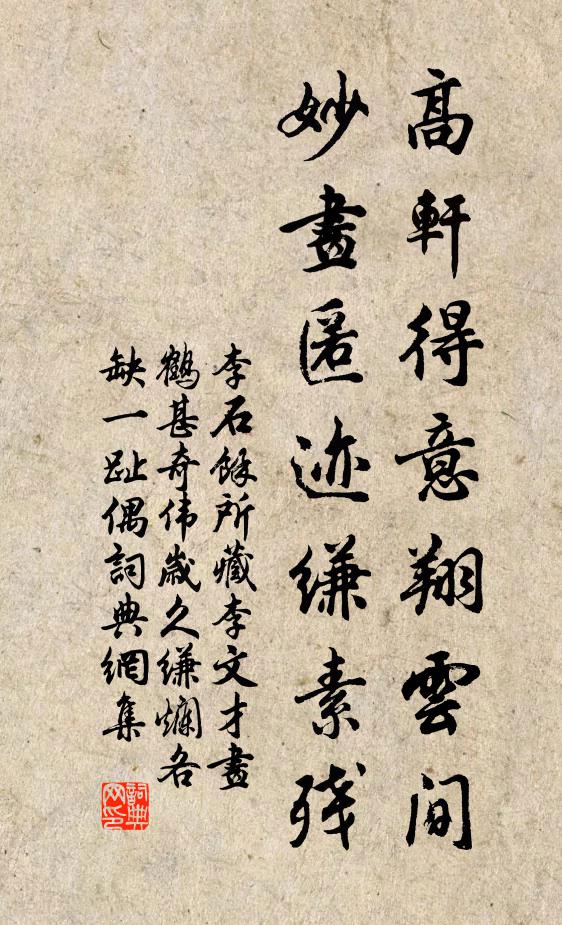 高軒得意翔雲間
妙畫匿迹縑素残
李石餘所藏李文才畫
鶴甚奇伟歲久縑爛各
缺一趾偶詞典網集
詞典
网印